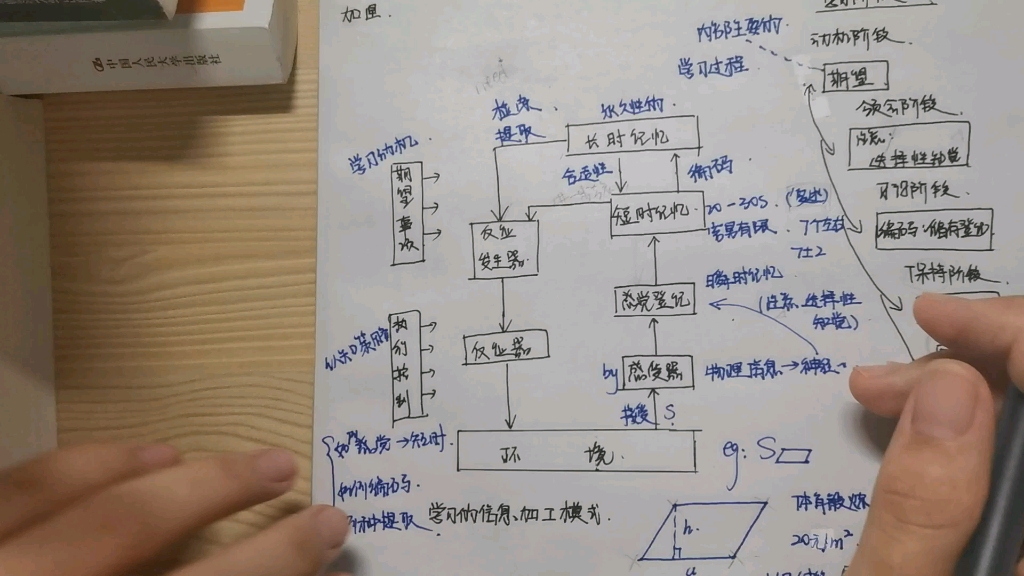 中国人民大学出版社
加里.
内部主要的
学习过程
动机阶段.
期望
领会阶段
注意:
选择性知觉
习得阶段.
编码.储存登记
保持阶段.
检索.
提取
永久性的.
长时记忆
合适性
编码
学习动机.
期望事项
反应
发生器.
短时记忆.
20-30s.
容量有限.
7个左右
7±2
感觉登记
瞬时记忆
(注意、选择性
知觉)
认知策略
执行控制
反应器
by
感受器
物理信息→神经
接受 S
环 境.
eg: S
如何感觉→短时.
如何编码.
何种提取
学习的信息加工模式.
h.
a
20元/m²